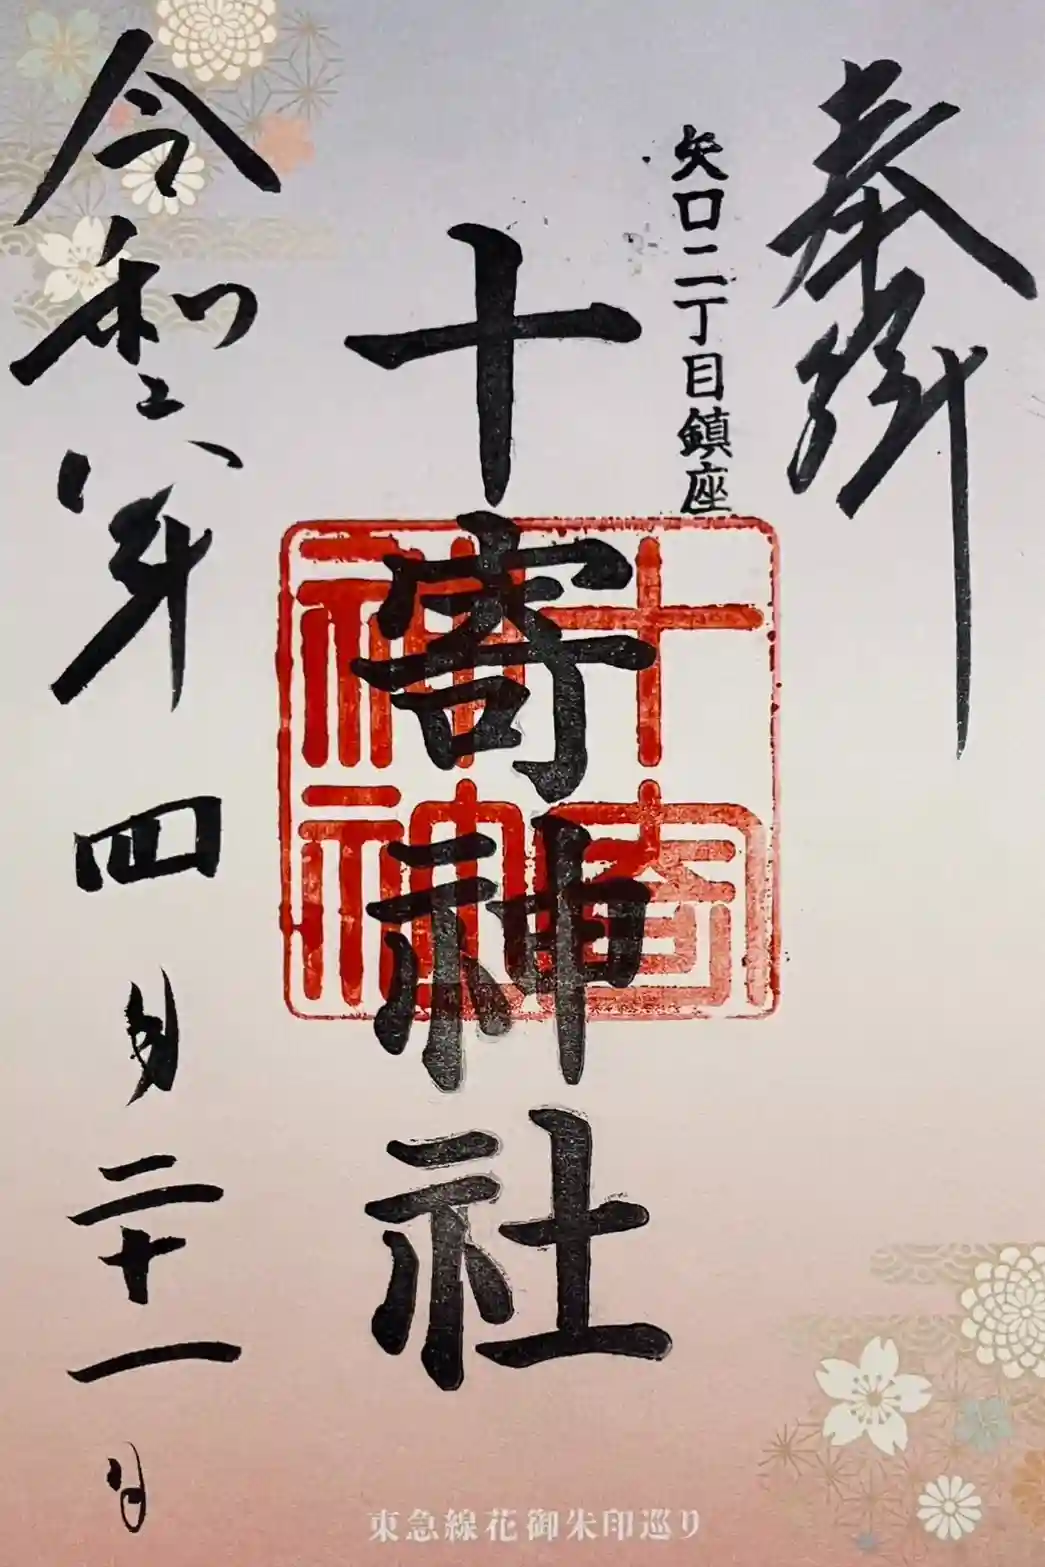 奉拝
矢口二丁目鎮座
十寄神社
十寄神社
令和六年四月二十一日
東急線花御朱印巡り